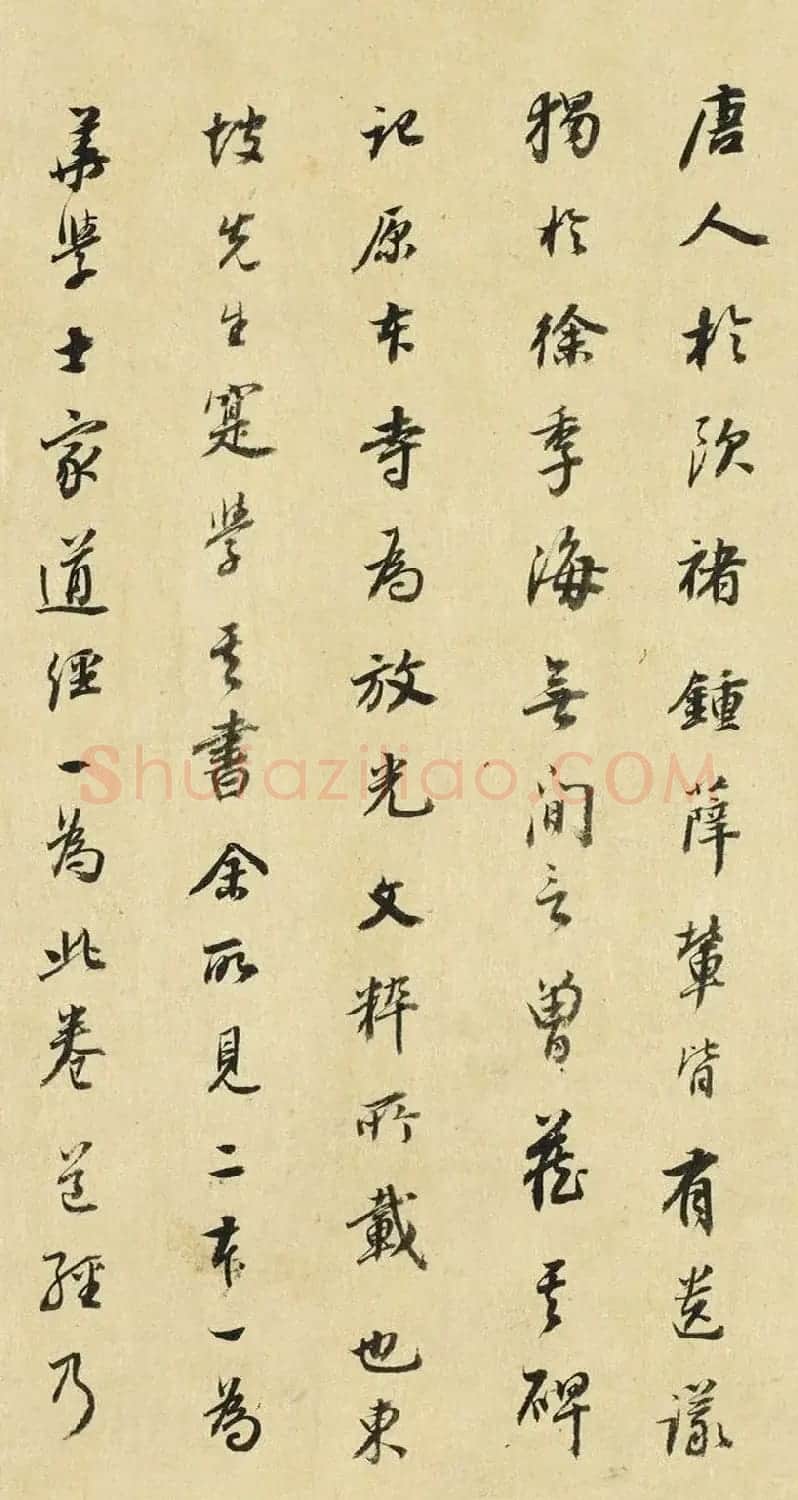 唐人於欧褚鍾薛輩皆有遗議
獨於徐季海無间言曾藏其碑
记原本寺為放光文粹所載也東
坡先生寔學其書余所見二本一為
華學士家道經一為此卷道經乃
Shufaziliao.COM